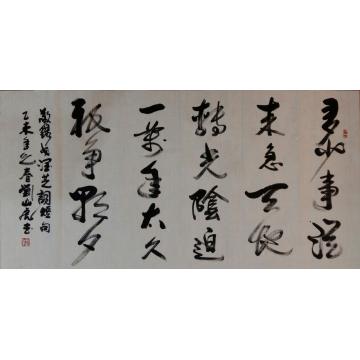 多少事從
来急天地
轉光陰迫
一萬年太久
祇争朝夕
敬録毛潤芝詞句
乙未年之春劉山書